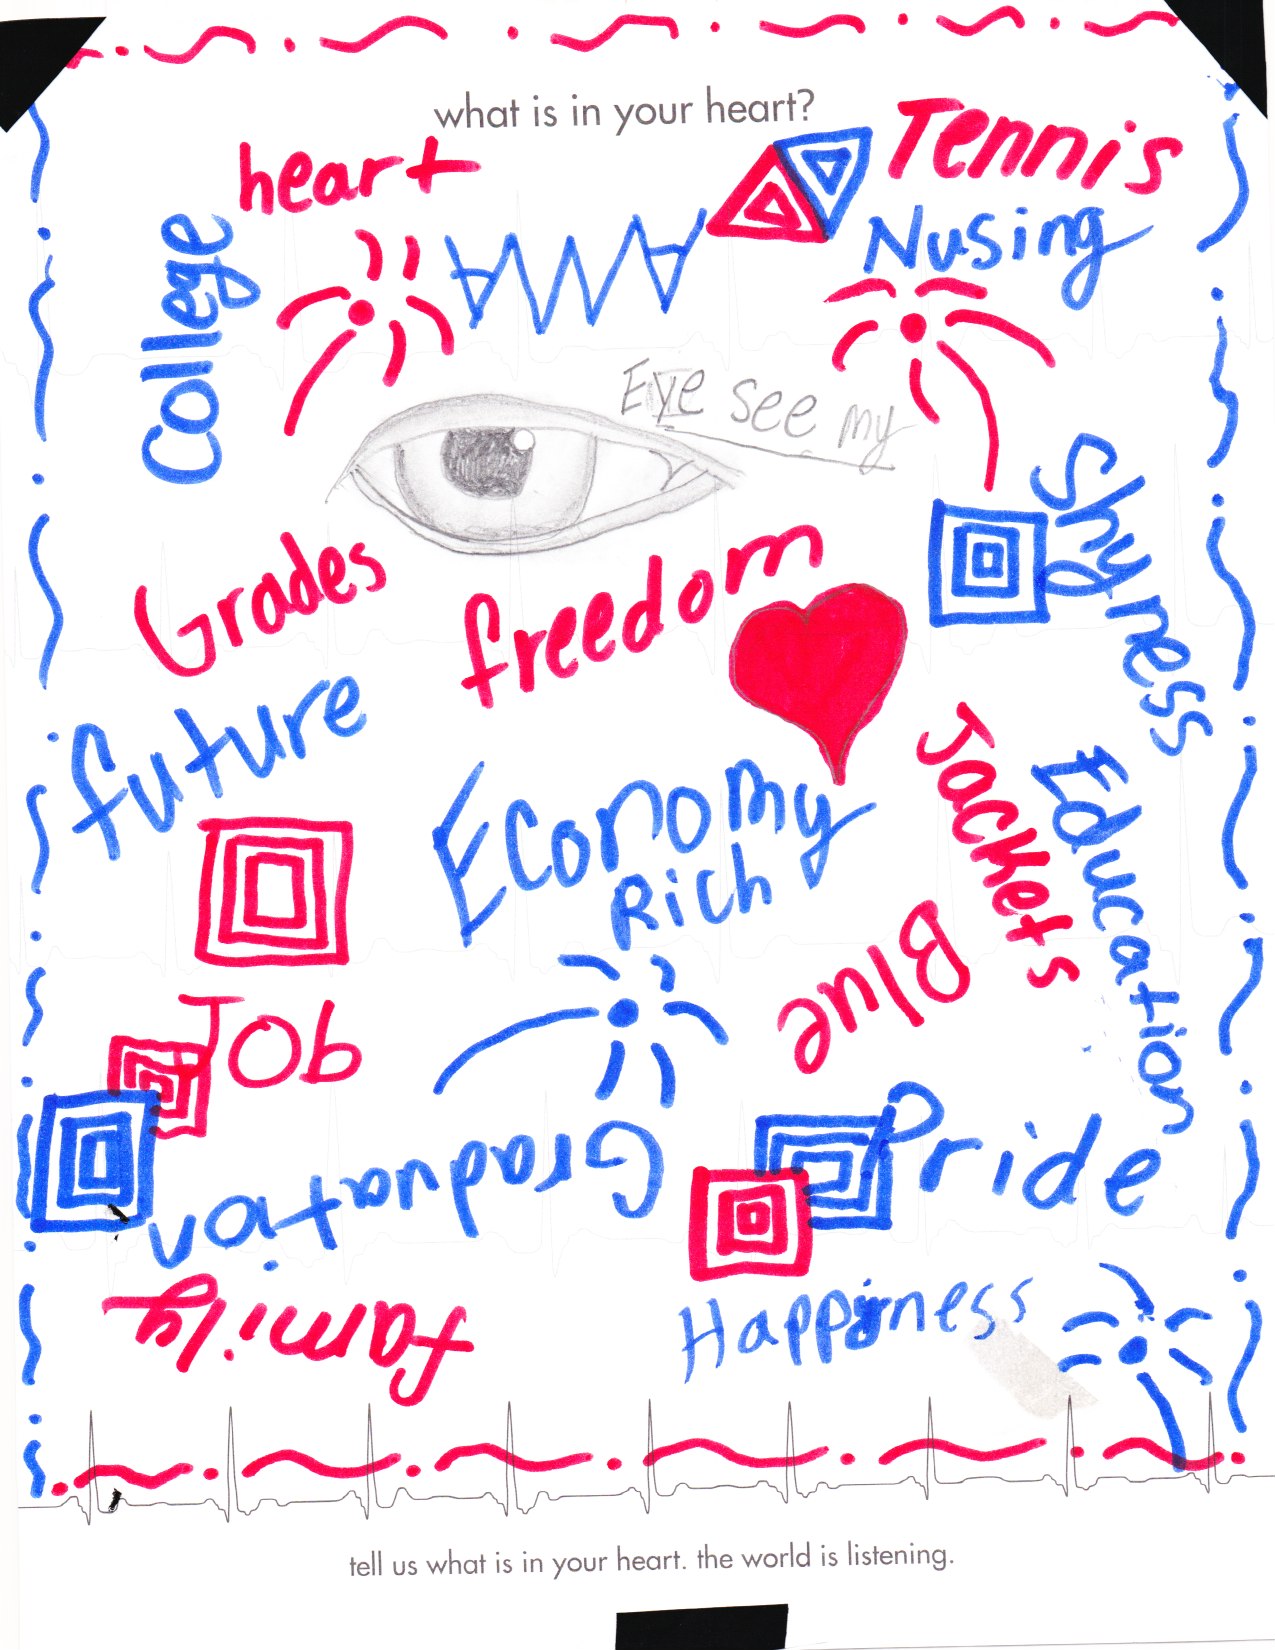 what is in your heart?
heart
Tennis
Nusing
College
AMA
Eye see my
Shyness
Grades
freedom
future
Economy
Rich
Jackets
Education
Blue
Job
Pride
Graduation
family
Happiness
tell us what is in your heart. the world is listening.